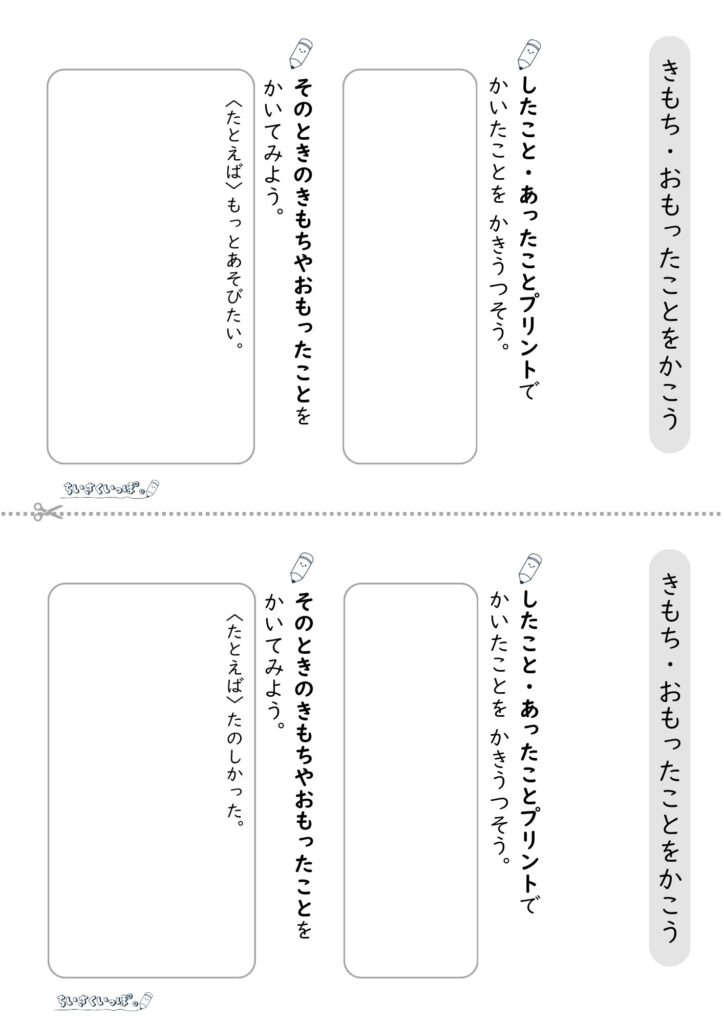 きもち・おもったことをかこう
したこと・あったことプリントで
かいたことを かきうつそう。
そのときのきもちやおもったことを
かいてみよう。
〈たとえば〉もっとあそびたい。
ちいさくいっぽ。
きもち・おもったことをかこう
したこと・あったことプリントで
かいたことを かきうつそう。
そのときのきもちやおもったことを
かいてみよう。
〈たとえば〉たのしかった。
ちいさくいっぽ。